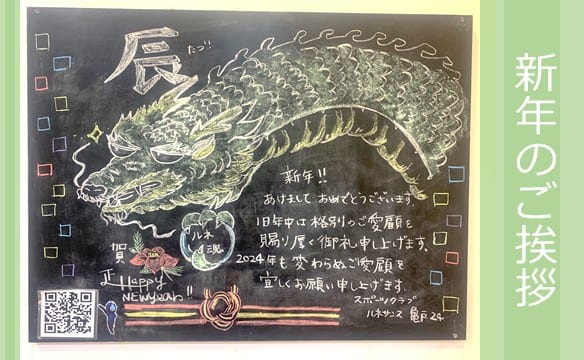 辰
たつ!!
新年!!
あけまして おめでとうございます。
旧年中は格別のご愛顧を
賜り厚く御礼申し上げます。
2024年も変わらぬご愛顧を
宜しくお願い申し上げます。
スポーツクラブ
ルネサンス 亀戸24
ルネ
d魂
賀
正
Happy
NEWyear!!
新年のご挨拶